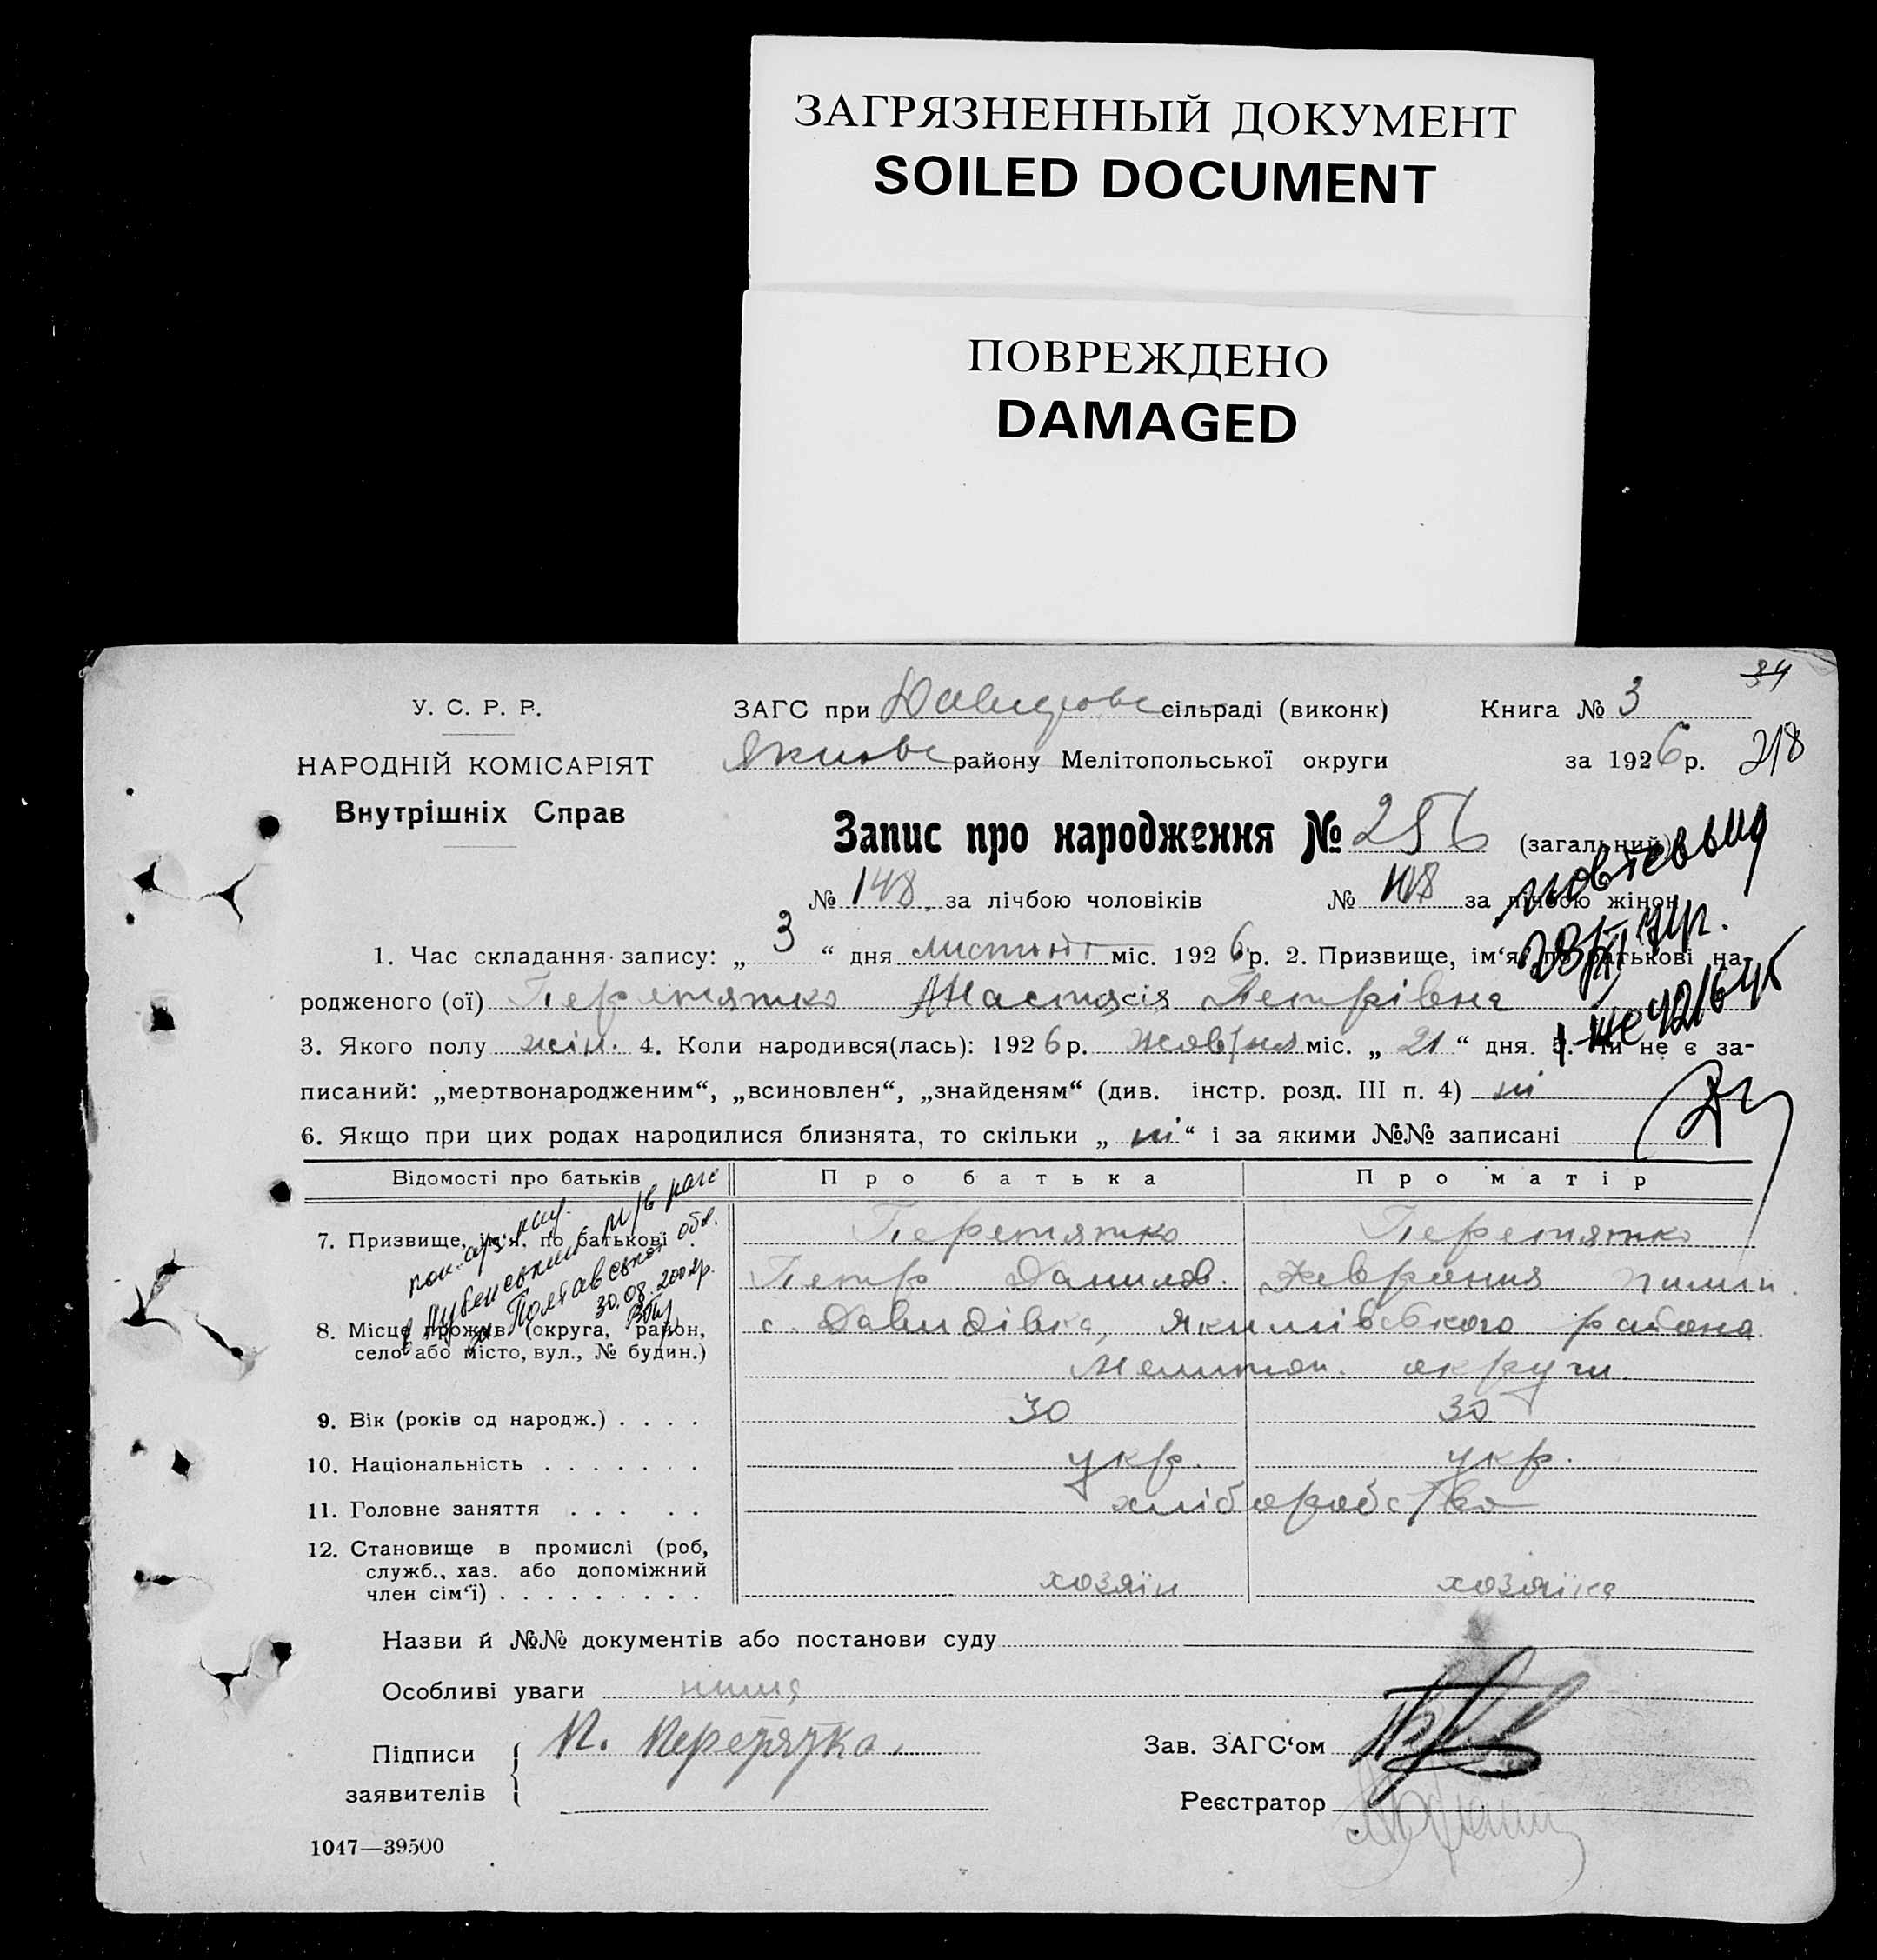 ЗАГРЯЗНЕННЫЙ ДОКУМЕНТ
SOILED DOCUMENT
ПОВРЕЖДЕНО
DAMAGED
34
У. С. Р. Р.
ЗАГС при Давидовс сільраді (виконк)
Книга № 3
НАРОДНІЙ КОМІСАРІЯТ
Внутрішніх Справ
Якимовс району Мелітопольської округи
за 1926 р.
218
Запис про народження № 256 (загальний)
№ 148 за лічбою чоловіків № 108 за лічбою жінок
1. Час складання запису: „ 3 “ дня листопт міс. 1926 р. 2. Призвище, ім‘я, по батькові на-
родженого (ої) Перетятко Настасія Петрівна
3. Якого полу жін. 4. Коли народився(лась): 1926 р. жовтня міс. „ 21 “ дня. 5. Чи не є за-
писаний: „мертвонародженим“, „всиновлен“, „знайденям“ (див. інстр. розд. III п. 4) ні
6. Якщо при цих родах народилися близнята, то скільки „ ні “ і за якими №№ записані
Відомості про батьків
Про батька
Про матір
7. Призвище, ім‘я, по батькові
Перетятко Перетятко
Петр Данилов. Феврония
8. Місце прожив. (округа, район,
село або місто, вул., № будин.)
с. Давидівка, Якимівського района
Мелитоп. округи.
Полтавської обл.
30.08.2002р.
9. Вік (років од народж.) . . . .
30 30
10. Національність . . . . . . .
укр. укр.
11. Головне заняття . . . . .
хліборобство
12. Становище в промислі (роб,
служб., хаз. або допоміжний
член сім‘ї) . . . . . . . . .
хозяїн хозяїка
Назви й №№ документів або постанови суду
Особливі уваги нима
Підписи
заявителів
П. Перетятко.
Зав. ЗАГС‘ом
Реєстратор
1047—39500